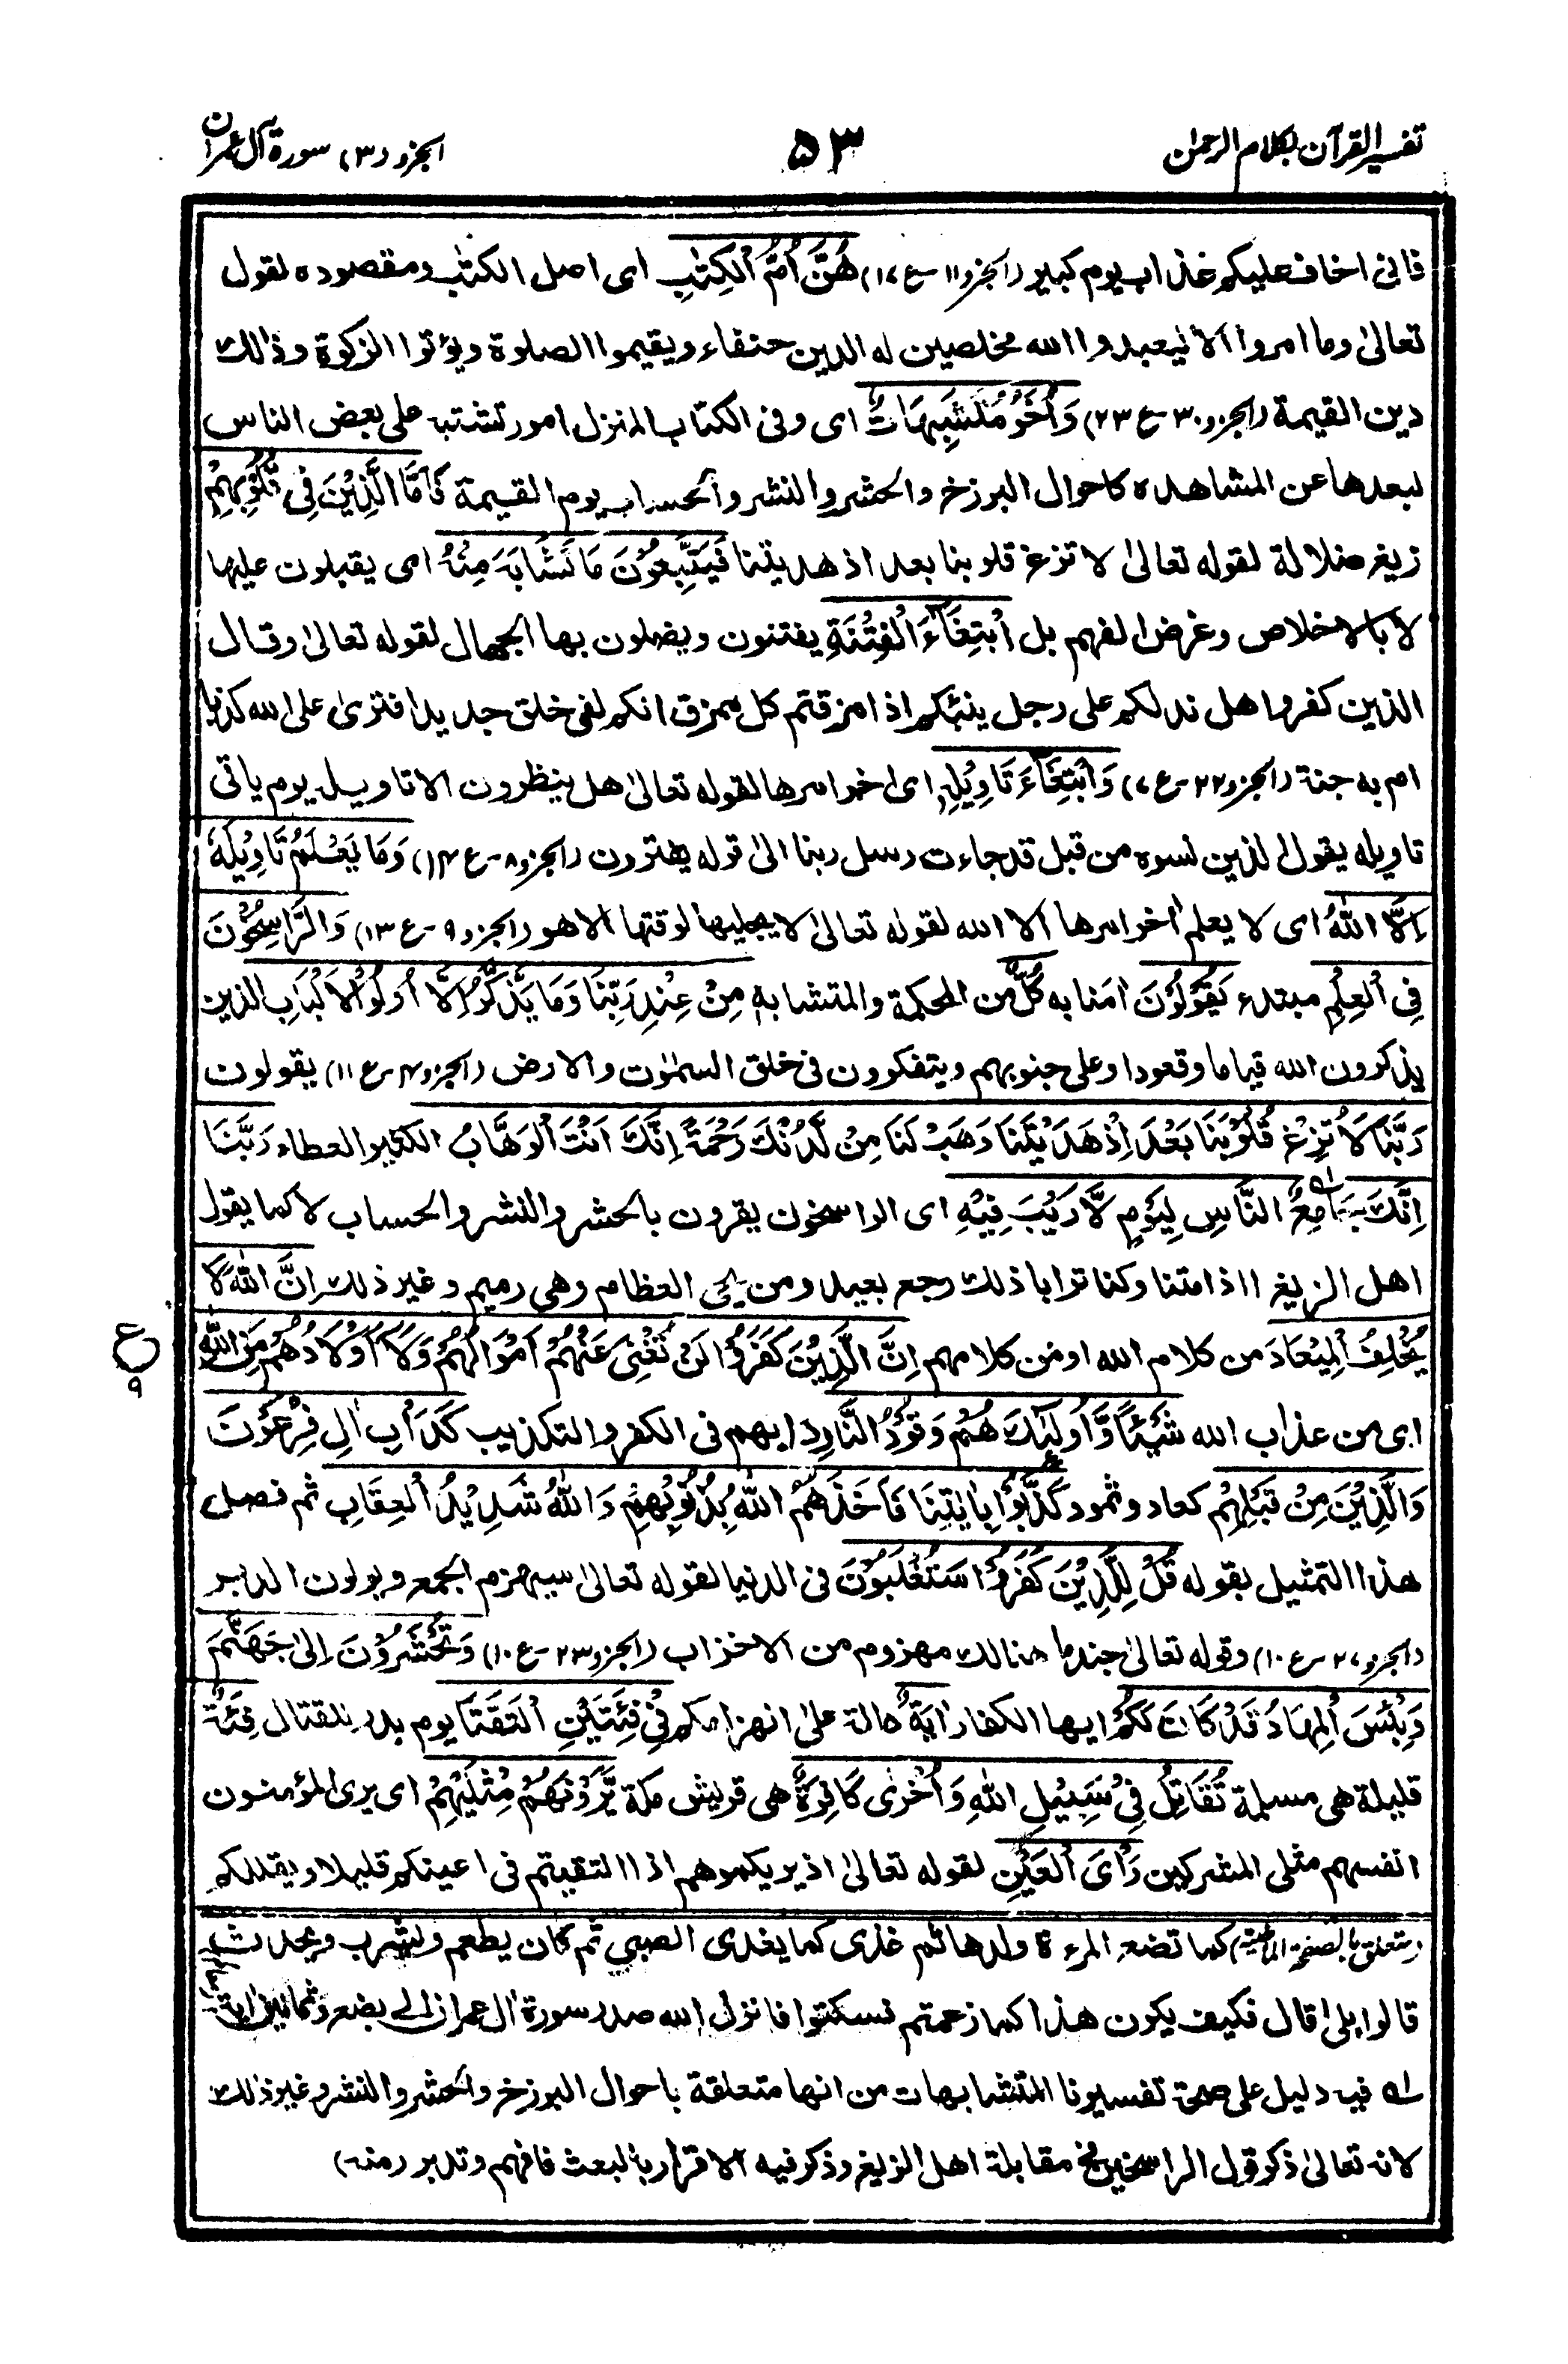 تفسير القرآن بكلام الرحمن
٥٣
الجزو (٣) سورة آل عمران
فانى اخاف عليكم عذاب يوم كبير (الجزو ١١-ع ١٧) هُنَّ أُمُّ الْكِتٰبِ اى اصل الكتٰب ومقصوده لقول
تعالىٰ وما امروا الا ليعبدوا الله مخلصين له الدين حنفاء ويقيموا الصلوة ويؤتوا الزكوة وذالك
دين القيمة (الجزو ٣٠-ع ٢٣) وَأُخَرُ مُتَشٰبِهَاتٌ اى وفى الكتاب المنزل امور تشتبه على بعض الناس
لبعدها عن المشاهده كاحوال البرزخ والحشر والنشر والحساب يوم القيمة فَاَمَّا الَّذِيْنَ فِى قُلُوْبِهِمْ
زيغ ضلالة لقوله تعالىٰ لا تزغ قلوبنا بعد اذ هديتنا فَيَتَّبِعُوْنَ مَا تَشَابَهَ مِنْهُ اى يقبلون عليها
لا بالاخلاص وغرض الفهم بل ابْتِغَآءَ الْفِتْنَةِ يفتنون ويضلون بها الجهال لقوله تعالىٰ وقال
الذين كفروا هل ندلكم على رجل ينبئكم اذا مزقتم كل ممزق انكم لفى خلق جديد افترىٰ على الله كذبا
ام به جنة (الجزو ٢٢-ع ٧) وَابْتِغَآءَ تَاْوِيْلِهٖ اى اخر امرها لقوله تعالىٰ هل ينظرون الا تاويله يوم ياتى
تاويله يقول الذين نسوه من قبل قد جاءت رسل ربنا الىٰ قوله يفترون (الجزو ٨-ع ١٣) وَمَا يَعْلَمُ تَاوِيْلَهٗ
اِلَّا اللّٰهُ اى لا يعلم اٰخر امرها الا الله لقوله تعالىٰ لا يجليها لوقتها الا هو (الجزو ٩-ع ١٣) وَالرَّاسِخُوْنَ
فِى الْعِلْمِ مبتدء يَقُوْلُوْنَ اٰمنا به كُلٌّ من المحكمة والمتشابه مِنْ عِنْدِ رَبِّنَا وَمَا يَذَّكَّرُ اِلَّا اُولُوا الْاَلْبَابِ الذين
يذكرون الله قياما وقعودا وعلى جنوبهم ويتفكرون فى خلق السمٰوٰت والارض (الجزو ٤-ع ١١) يقولون
رَبَّنَا لَا تُزِغْ قُلُوْبَنَا بَعْدَ اِذْ هَدَيْتَنَا وَهَبْ لَنَا مِنْ لَّدُنْكَ رَحْمَةً اِنَّكَ اَنْتَ الْوَهَّابُ الكثير العطاء رَبَّنَا
اِنَّكَ جَامِعُ النَّاسِ لِيَوْمٍ لَّا رَيْبَ فِيْهِ اى الراسخون يقرون بالحشر والنشر والحساب لا كما يقول
اهل الزيغ ااذا متنا وكنا ترابا ذلك رجع بعيد ومن يحى العظام وهى رميم وغير ذلك اِنَّ اللّٰهَ لَا
يُخْلِفُ الْمِيْعَادَ من كلام الله او من كلامهم اِنَّ الَّذِيْنَ كَفَرُوْا لَنْ تُغْنِىَ عَنْهُمْ اَمْوَالُهُمْ وَلَآ اَوْلَادُهُمْ مِّنَ اللّٰهِ
ع
٩
اى من عذاب الله شَيْئًا وَّاُولٰٓئِكَ هُمْ وَقُوْدُ النَّارِ دابهم فى الكفر والتكذيب كَدَاْبِ اٰلِ فِرْعَوْنَ
وَالَّذِيْنَ مِنْ قَبْلِهِمْ كعاد وثمود كَذَّبُوْا بِاٰيٰتِنَا فَاَخَذَهُمُ اللّٰهُ بِذُنُوْبِهِمْ وَاللّٰهُ شَدِيْدُ الْعِقَابِ ثم فصل
هذا التمثيل بقوله قُلْ لِلَّذِيْنَ كَفَرُوْا سَتُغْلَبُوْنَ فى الدنيا لقوله تعالىٰ سيهزم الجمع ويولون الدبر
(الجزو ٢٧-ع ١٠) وقوله تعالىٰ جند ما هنالك مهزوم من الاحزاب (الجزو ٢٣-ع ١٠) وَتُحْشَرُوْنَ اِلىٰ جَهَنَّمَ
وَبِئْسَ الْمِهَادُ قَدْ كَانَ لَكُمْ ايها الكفار اٰيَةٌ دالة علىٰ انهزامكم فِىْ فِئَتَيْنِ الْتَقَتَا يوم بدر للقتال فِئَةٌ
قليلة هى مسلمة تُقَاتِلُ فِىْ سَبِيْلِ اللّٰهِ وَاُخْرٰى كَافِرَةٌ هى قريش مكة يَّرَوْنَهُمْ مِّثْلَيْهِمْ اى يرى المؤمنون
انفسهم مثلى المشركين رَاْىَ الْعَيْنِ لقوله تعالىٰ اذ يريكموهم اذا التقيتم فى اعينكم قليلا ويقللكم
(متعلق بالصفحة الماضية) كما تضع المرءة ولدها ثم غذى كما يغذى الصبى ثم كان يطعم ويشرب ويحدث
قالوا بلىٰ قال فكيف يكون هذا كما زعمتم فسكتوا فانزل الله صدر سورة اٰل عمران الى بضع وثمانين اٰية
له فيه دليل على صحة تفسيرنا المتشابهات من انها متعلقة باحوال البرزخ والحشر والنشر وغير ذلك
لانه تعالىٰ ذكر قول الراسخين فى مقابلة اهل الزيغ وذكر فيه الاقرار بالبعث فافهم وتدبر (منه)